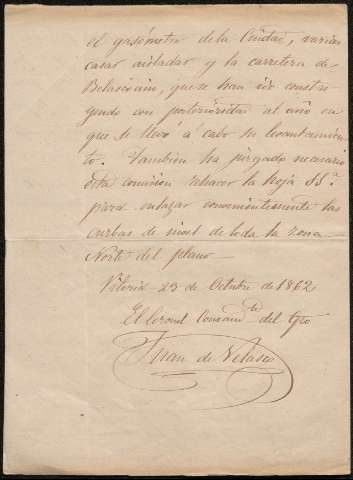 el gasómetro de la Ciudad, varias
casas aisladas y la carretera de
Belascoain, que se han ido constru
yendo con posterioridad al año en
que se llevo a cabo su levantamien
to. Tambien ha juzgado necesario
esta comision rehacer la hoja 55.ª
para enlazar convenientemente las
curbas de nivel de toda la zona
Norte del plano—
Vitoria 23 de Octubre de 1862
El Coronel Comand.te del
Juan de Velasco